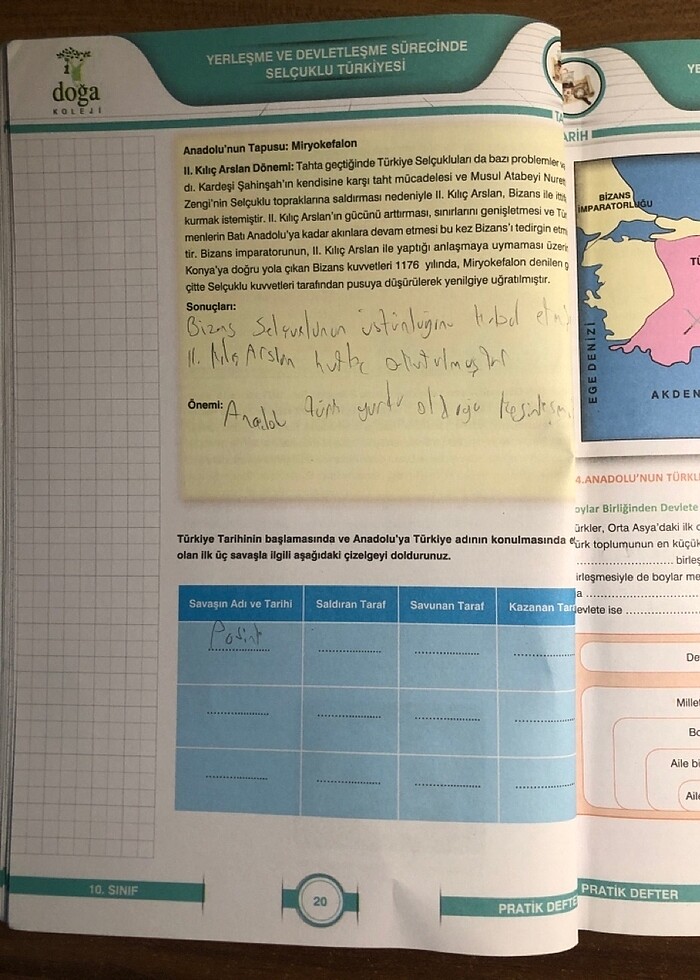 doğa
KOLEJİ
YERLEŞME VE DEVLETLEŞME SÜRECİNDE
SELÇUKLU TÜRKİYESİ
Anadolu'nun Tapusu: Miryokefalon
II. Kılıç Arslan Dönemi: Tahta geçtiğinde Türkiye Selçukluları da bazı problemler
dı. Kardeşi Şahinşah'ın kendisine karşı taht mücadelesi ve Musul Atabeyi
Zengi'nin Selçuklu topraklarına saldırması nedeniyle II. Kılıç Arslan, Bizans ile
kurmak istemiştir. II. Kılıç Arslan'ın gücünü arttırması, sınırlarını genişletmesi ve
menlerin Batı Anadolu'ya kadar akınlara devam etmesi bu kez Bizans'ı tedirgin
tir. Bizans imparatorunun, II. Kılıç Arslan ile yaptığı anlaşmaya uymaması
Konya'ya doğru yola çıkan Bizans kuvvetleri 1176 yılında, Miryokefalon denilen
çitte Selçuklu kuvvetleri tarafından pusuya düşürülerek yenilgiye uğratılmıştır.
Sonuçları:
Bizans Selçuklunun üstünlüğünü kabul
II. Kılıç Arslan
Önemi: Anadolu Türk yurdu olduğu
Türkiye Tarihinin başlamasında ve Anadolu'ya Türkiye adının konulmasında
olan ilk üç savaşla ilgili aşağıdaki çizelgeyi doldurunuz.
Savaşın Adı ve Tarihi Saldıran Taraf Savunan Taraf Kazanan
10. SINIF
20
PRATİK
ARİH
BİZANS
İMPARATORLUĞU
EGE DENİZİ
4.ANADOLU'NUN
Birliğinden Devlete
Orta Asya'daki ilk
toplumunun en küçük
de boylar
ise ..........
Aile
PRATİK DEFTER